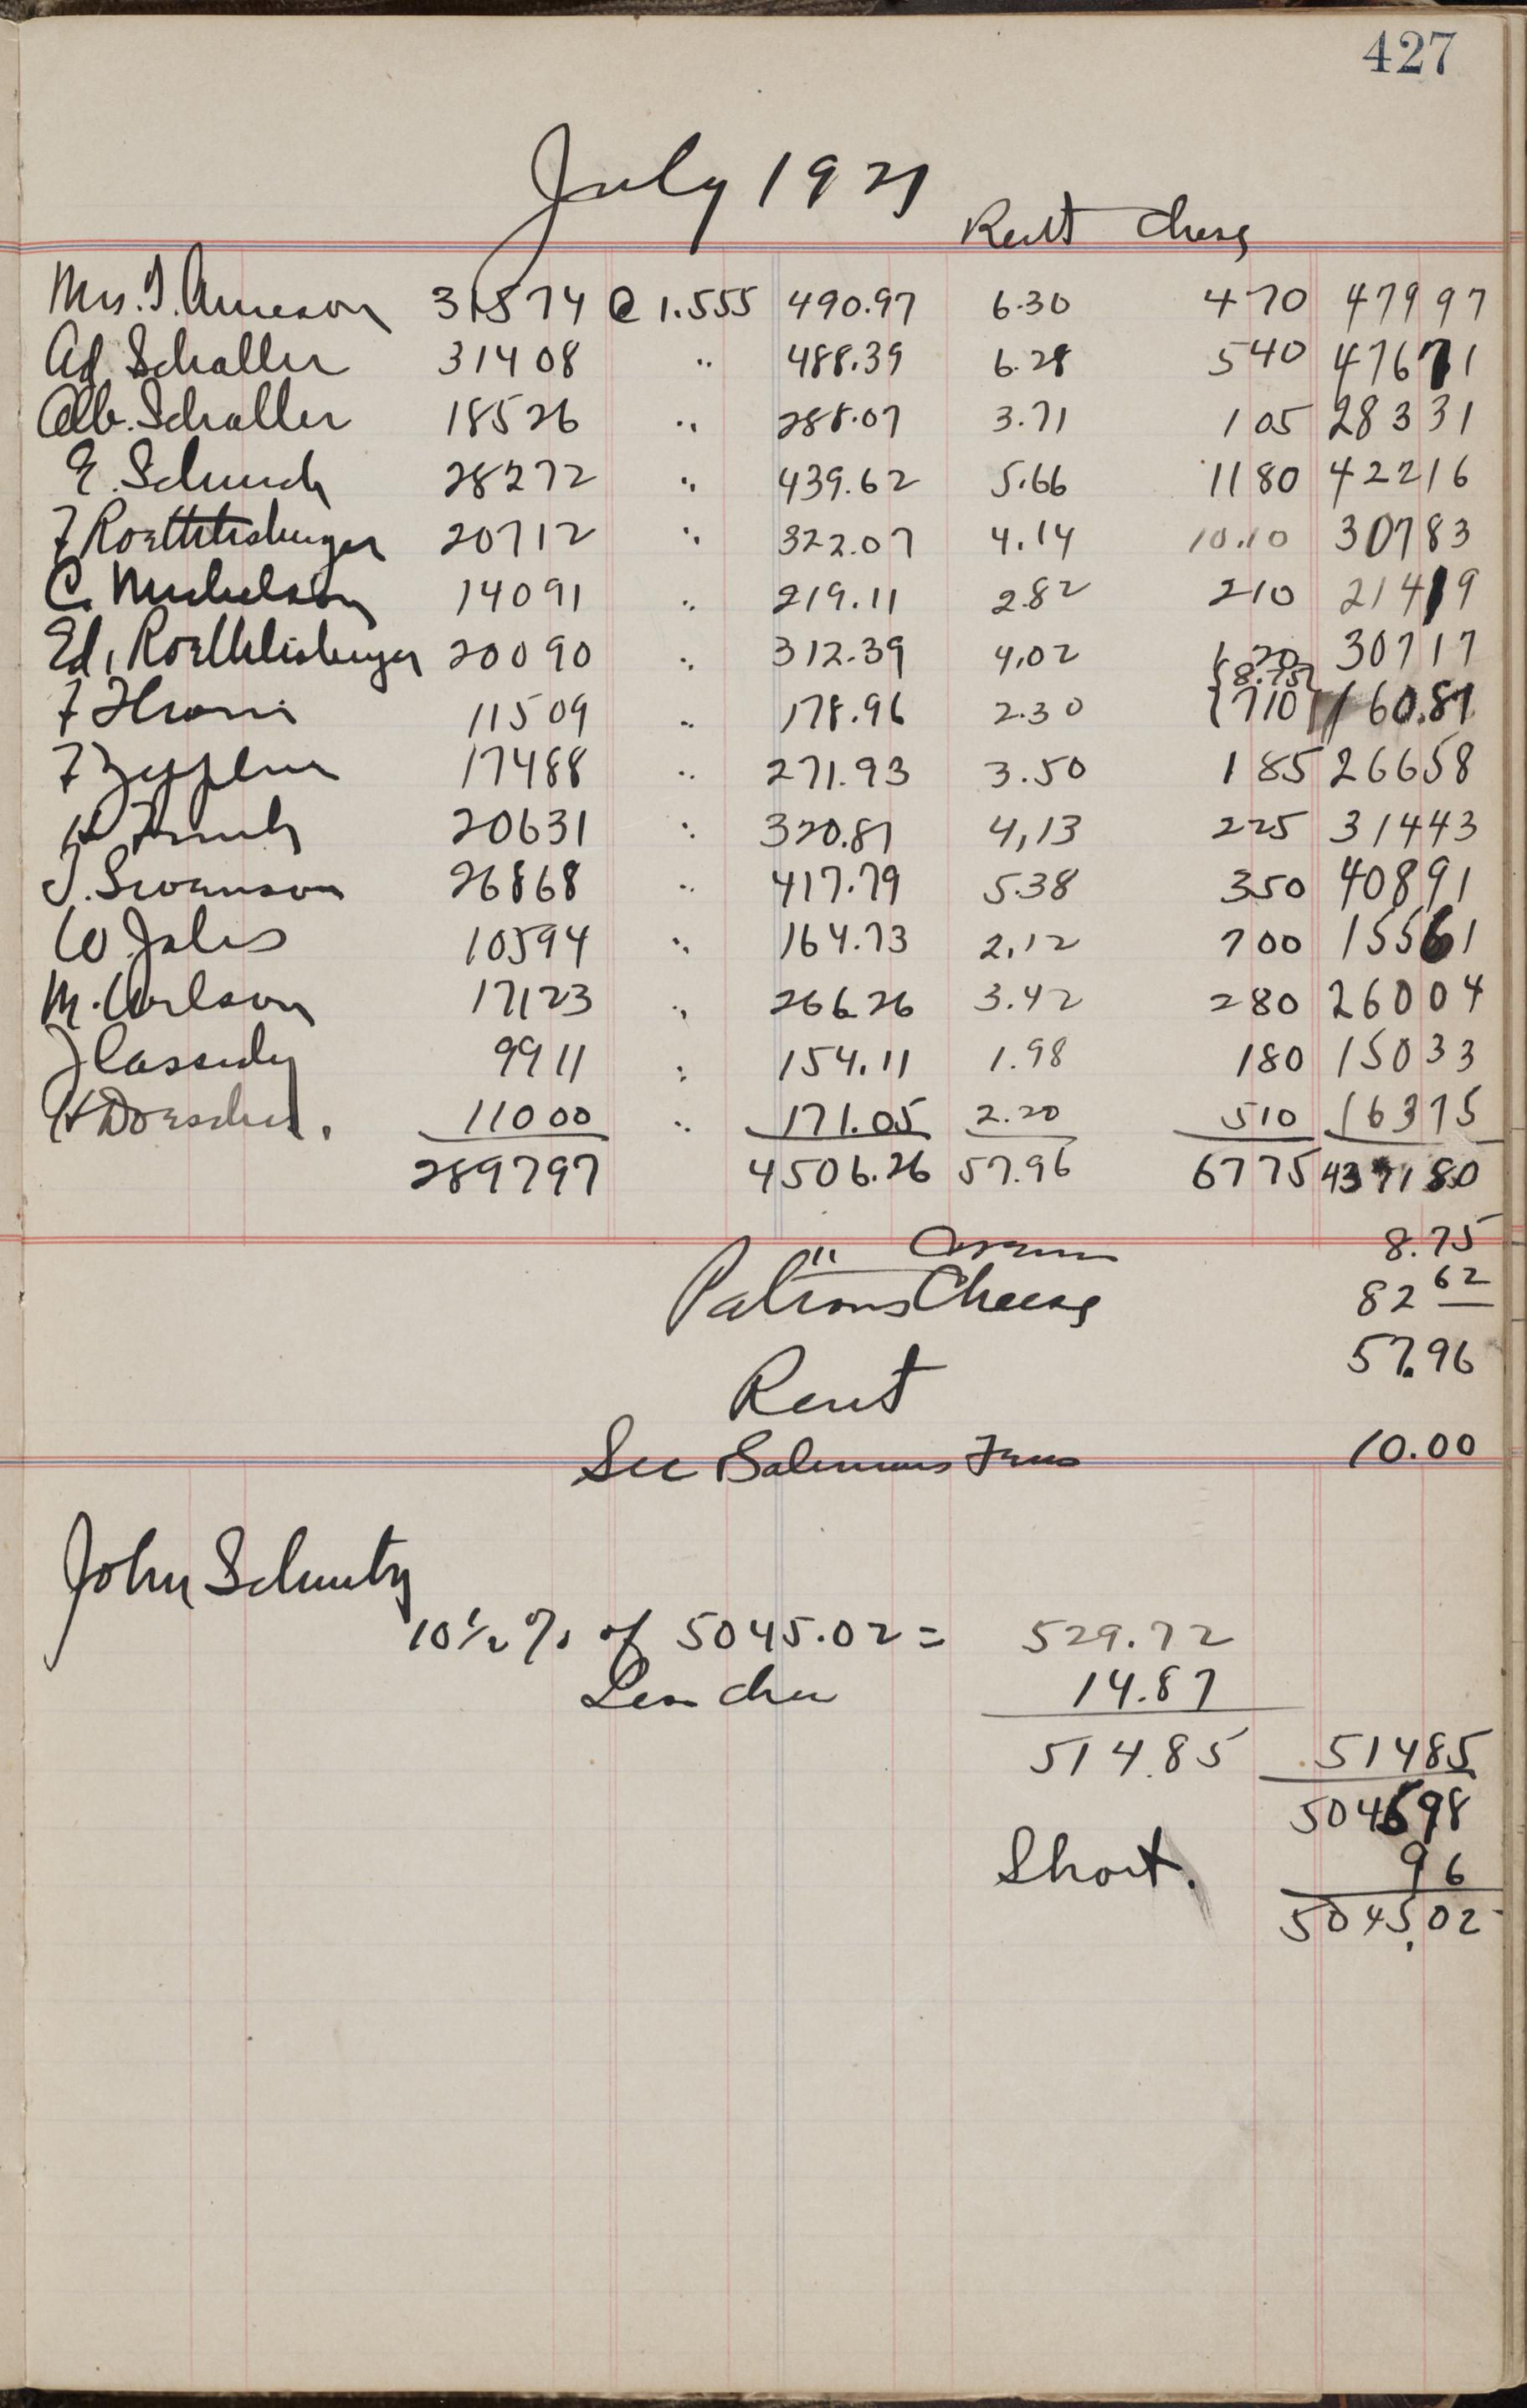 427
July 1921
Rent Cheese
Mrs. T. Arneson 31574 @ 1.555 490.97 6.30 470 479 97
Ad Schaller 31408 " 488.39 6.28 540 476 71
Alb. Schaller 18526 " 288.07 3.71 105 283 31
E. Schmid 28272 " 439.62 5.66 1180 422 16
F Roethlisberger 20712 " 322.07 4.14 10.10 307 83
C. Michelson 14091 " 219.11 2.82 210 214 19
Ed. Roethlisberger 20090 " 312.39 4.02 1 20 307 17
8.75
F 11509 " 178.96 2.30 710 160.81
F 17488 " 271.93 3.50 1 85 266 58
20631 " 320.81 4,13 225 314 43
J. Swenson 26868 " 417.79 5.38 350 408 91
W. 10594 " 164.73 2.12 700 155 61
M. Carlson 17123 " 266.26 3.42 280 260 04
J Cassidy 9911 " 154.11 1.98 180 150 33
H 11000 " 171.05 2.20 510 163 75
289797 4506.26 57.96 6775 4371 80
" Cream 8.75
Patrons Cheese 82 62
Rent 57.96
Sec 10.00
John
10½ % of 5045.02 = 529.72
Less 14.87
514.85 514 85
5045 98
Short. 96
5045.02